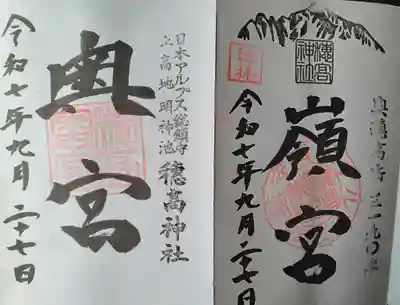 日本アルプス総鎮守
上高地明神池 穂高神社
奥宮
令和七年九月二十七日
奥穂高岳三一九〇米
穂高神社
嶺宮
令和七年九月二十七日